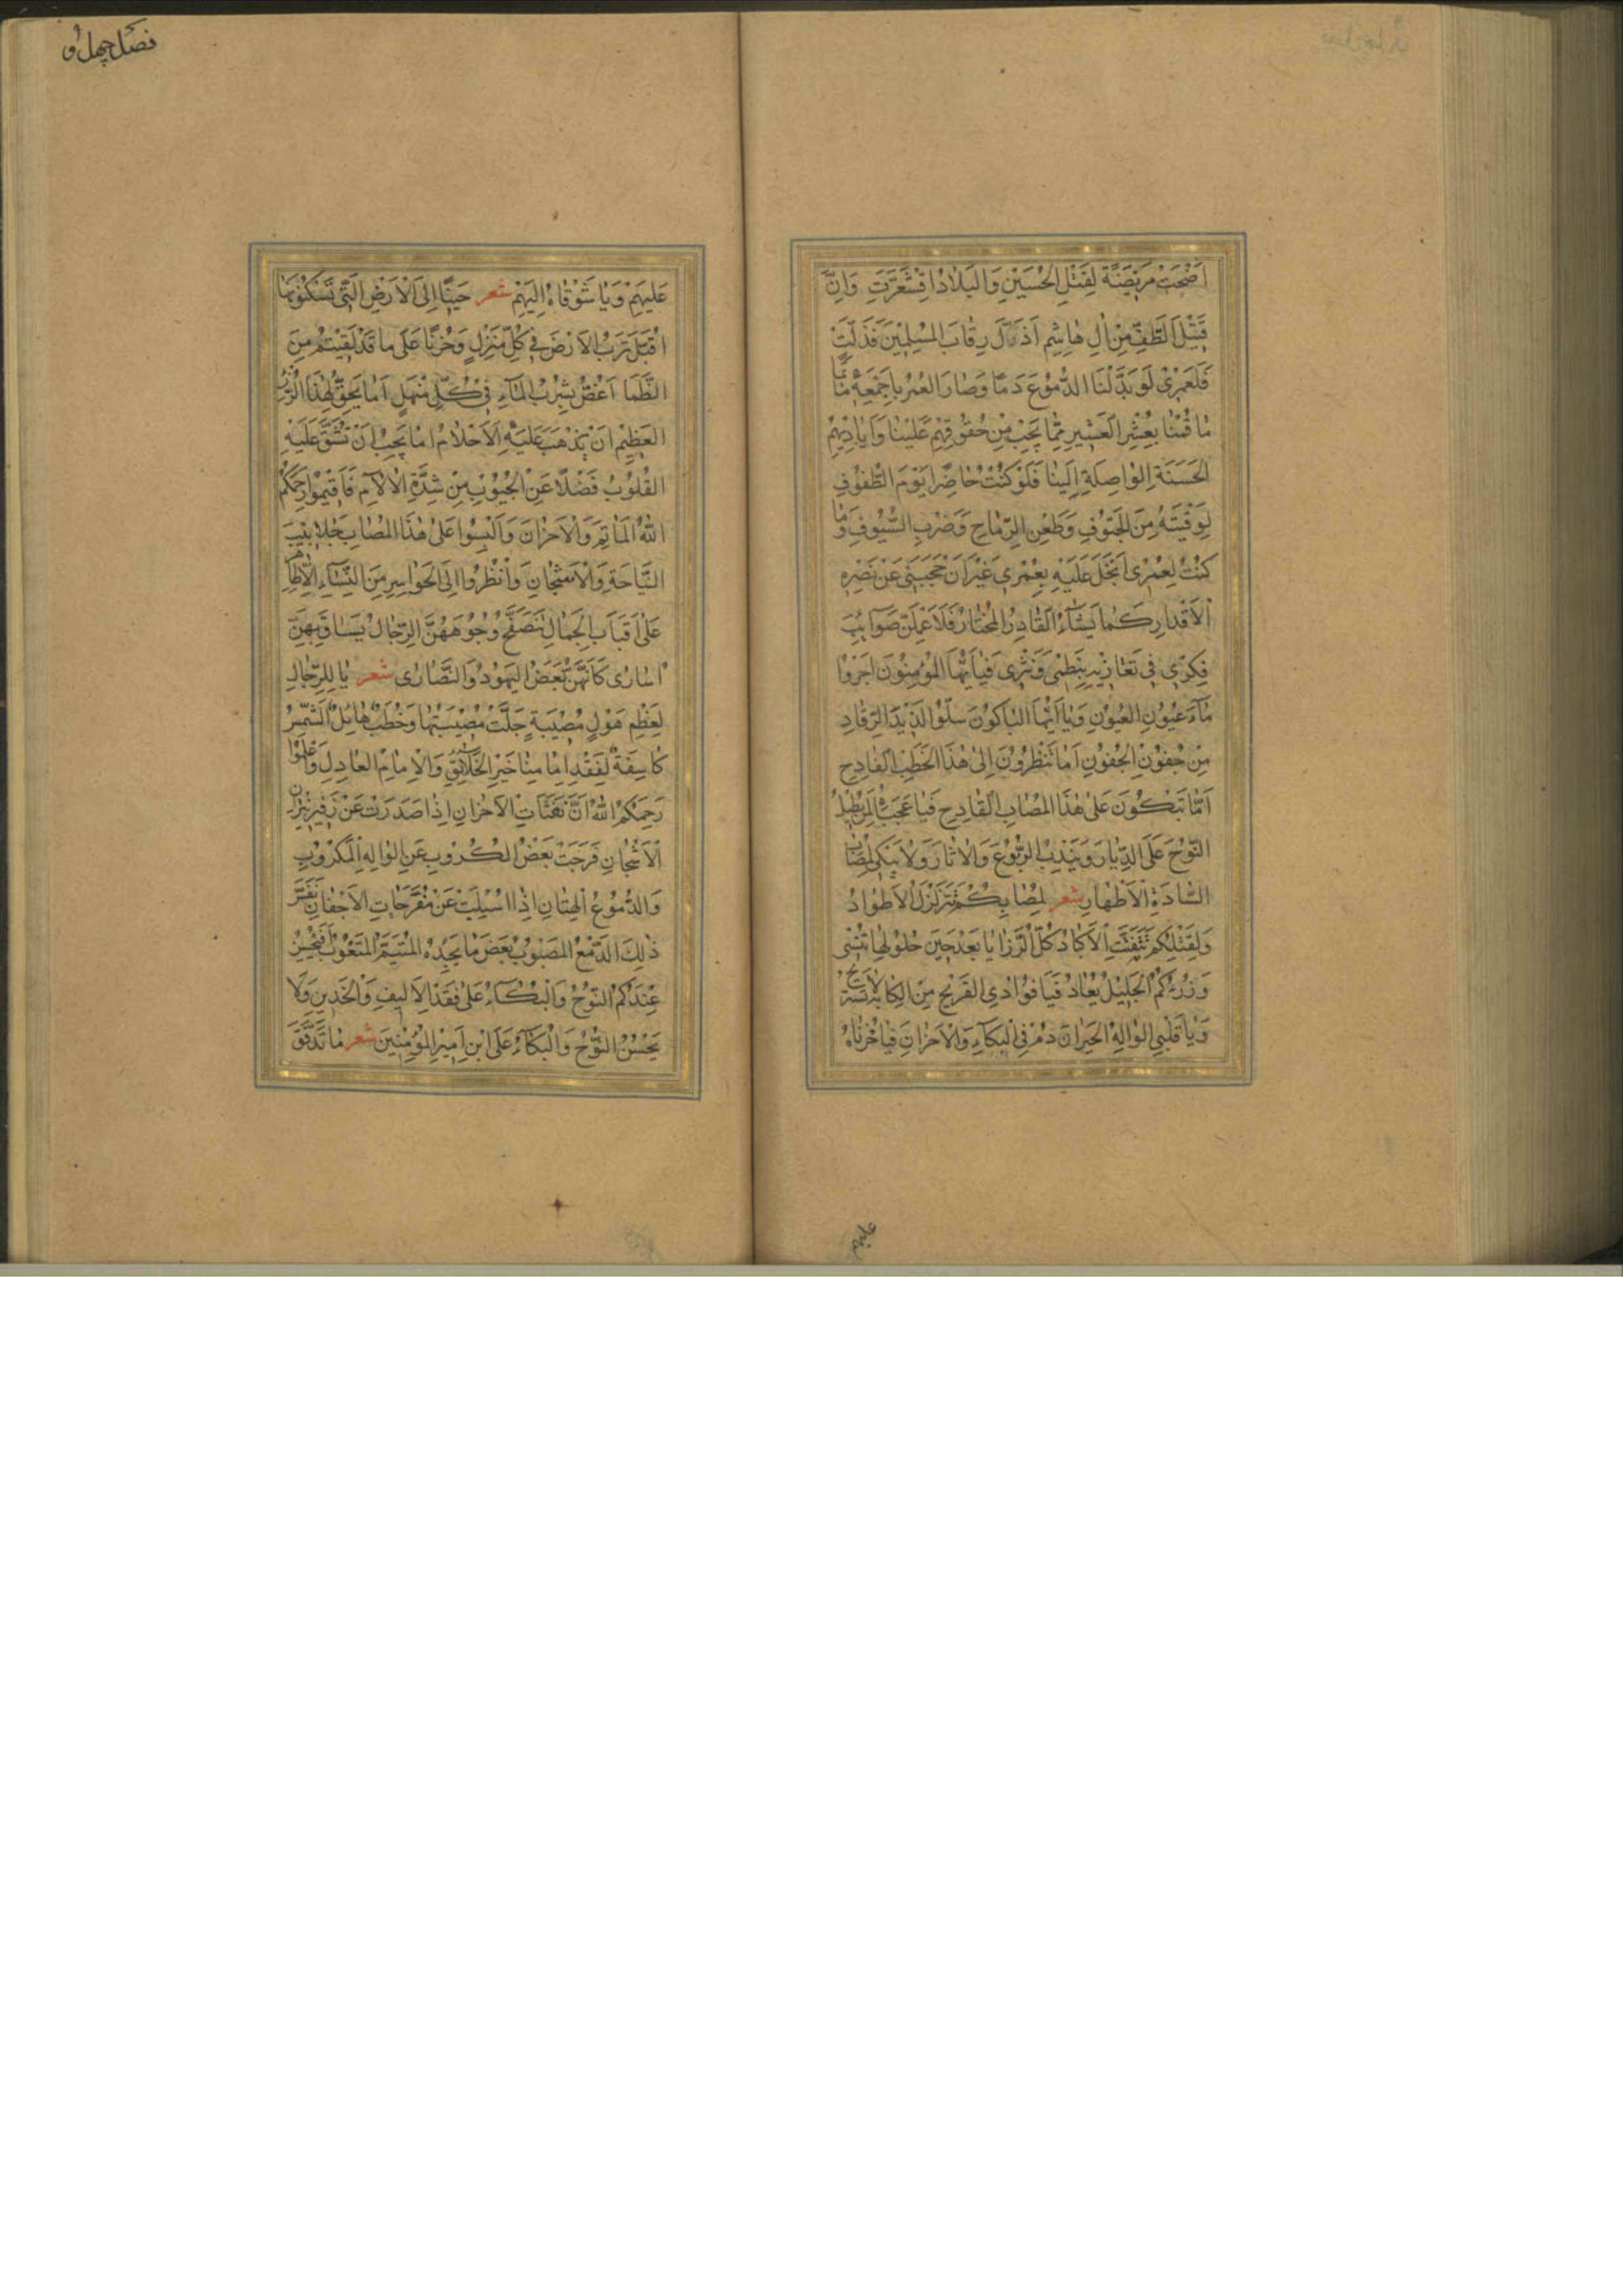 اَضْحَتْ مَرِيضَةً لِفَقْتْلِ الْحُسَيْنِ وَالبَلادُ اقْشَعَرَّتِ وَاِنَّ
قَتِيْلَ الطَّفِّ مِنْ اٰلِ هٰاشِمٍ اَذَلَّ رِقٰابَ المُسْلِمِيْنَ فَذَلَّتِ
فَلَعَمْرِيْ لَوْ بَدَّلْنَا الدُّمُوْعَ دَمًا وَصٰارَ العُمْرُ بِاَجْمَعِهِ مَاْتَمًا
مٰا قُمْنٰا بِعُشْرِ العَشِيْرِ مِمّٰا يَجِبُ مِنْ حُقُوْقِهِمْ عَلَيْنٰا وَاَيٰادِيْهِمُ
الْحَسَنَةِ الوٰاصِلَةِ اِلَيْنٰا فَلَوْ كُنْتُ حٰاضِرًا يَوْمَ الطُّفُوْفِ
لِوَقَيْتُهُ مِنَ الْحُتُوْفِ وَطَعْنِ الرِّمٰاحِ وَضَرْبِ السُّيُوْفِ وَمٰا
كُنْتُ لِعُمْرِى اَبْخَلُ عَلَيْهِ بِعُمْرِي غَيْرَ اَنْ حَجَبَنِى عَنْ نَصْرِهِ
الْاَقْدٰارِ كَمٰا يَشٰاءُ القٰادِرُ المُخْتٰارُ فَلَاُعْمِلَنَّ صَوٰائِبَ
فِكْرِي فِي تَعٰازِيْهِ بِنَظْمِى وَنَثْرِى فَيٰا اَيُّهَا المُؤْمِنُوْنَ اَجْرُوْا
مٰاءَ عُيُوْنِ العُيُوْنِ وَيٰا اَيُّهَا البٰاكُوْنَ سَلُّوْا لَذِيْذَ الرُّقٰادِ
مِنْ جُفُوْنِ الجُفُوْنِ اَمٰا تَنْظُرُوْنَ اِلىٰ هٰذَا الخَطْبِ الفٰادِحِ
اَمٰا تَبْكُوْنَ عَلىٰ هٰذَا المُصٰابِ القٰادِحِ فَيٰا عَجَبٰاهُ لِمَنْ يُطِيْلُ
النَّوْحَ عَلَى الدِّيٰارِ وَيَنْدُبُ الرُّبُوْعَ وَالاٰثٰارَ وَلاٰ يَبْكِى لِمُصٰابِ
السّٰادَةِ الْاَطْهٰارِ شعر لِمُصٰابِكُمْ تَتَزَلْزَلُ الْاَطْوٰادُ
وَلِقَتْلِكُمْ تَتَفَتَّتُ الْاَكْبٰادُ كُلُّ الرَّزٰايٰا بَعْدَ حِيْنَ حُلُوْلِهٰا تُنْسٰى
وَرُزْءُكُمُ الْجَلِيْلُ يُعٰادُ فَيٰا فُؤٰادِى القَرِيْحِ مِنَ الكَابَةِ لاٰ تَسْتَرِيْحُ
وَيٰا قَلْبِىَ الوٰالِهَ الحَيْرٰانَ دُمْ فِى الْبُكٰاءِ وَالْاَحْزٰانِ فَيٰا حُزْنٰاهُ
فصل چهل و
عَلَيْهِمْ وَيٰا شَوْقٰاهُ اِلَيْهِمْ شعر حَنِيْنًا اِلَى الْاَرْضِ الَّتِى تَسْكُنُوْنَهٰا
اُقَبِّلُ تُرْبَ الْاَرْضِ فِي كُلِّ مَنْزِلٍ وَحُزْنًا عَلىٰ مٰا قَدْ لَقِيْتُمْ مِنَ
الظَّمٰا اَغُصُّ بِشُرْبِ الْمٰاءِ فِى كُلِّ مَنْهَلٍ اَمٰا يَحِقُّ لِهٰذَا الرُّزْءِ
العَظِيْمِ اَنْ تَذْهَبَ عَلَيْهِ الْاَحْلاٰمُ اَمٰا يَجِبُ اَنْ تُشَقَّ عَلَيْهِ
القُلُوْبُ فَضْلًا عَنِ الْجُيُوْبِ مِنْ شِدَّةِ الْاٰلاٰمِ فَاَقِيْمُوْا رَحِمَكُمُ
اللّٰهُ المَاٰتِمَ وَالْاَحْزٰانَ وَالْبِسُوْا عَلىٰ هٰذَا المُصٰابِ جَلاٰبِيْبَ
النِّيٰاحَةِ وَالْاَشْجٰانِ وَانْظُرُوْا اِلَى الْحَوٰاسِرِ مِنَ النِّسٰاءِ الْاَطْهٰارِ
عَلىٰ اَقْتٰابِ الْجِمٰالِ تَتَصَفَّحُ وُجُوْهَهُنَّ الرِّجٰالُ يُسٰاقُ بِهِنَّ
اُسٰارىٰ كَاَنَّهُنَّ بَعْضُ اليَهُوْدِ وَالنَّصٰارىٰ شعر يٰا لِلرِّجٰالِ
لِعُظْمِ هَوْلِ مُصِيْبَةٍ جَلَّتْ مُصِيْبَتُهٰا وَخَطْبٌ هٰائِلٌ الشَّمْسُ
كٰاسِفَةٌ لِفَقْدِ اِمٰامِنٰا خَيْرِ الخَلاٰئِقِ وَالْاِمٰامِ العٰادِلِ وَاعْلَمُوْا
رَحِمَكُمُ اللّٰهُ اَنَّ نَفَثٰاتِ الْاَحْزٰانِ اِذٰا صَدَرَتْ عَنْ زَفِيْرِ نِيْرٰانِ
الْاَشْجٰانِ فَرَّجَتْ بَعْضَ الكُرُوْبِ عَنِ الوٰالِهِ الْمَكْرُوْبِ
وَالدُّمُوْعُ الْهِتٰانِ اِذٰا اُسْبِلَتْ عَنْ مُقَرَّحٰاتِ الْاَجْفٰانِ
ذٰلِكَ الدَّمْعُ المَصْبُوْبُ بَعْضَ مٰا يَجِدُهُ المُتَيَّمُ المَتْعُوْبُ اَفَيَحْسُنُ
عِنْدَكُمُ النَّوْحُ وَالْبُكٰاءُ عَلىٰ فَقْدِ الْاَلِيْفِ وَالْخَدِيْنِ وَلاٰ
يَحْسُنُ النَّوْحُ وَالْبُكٰاءُ عَلَى ابْنِ اَمِيْرِ المُؤْمِنِيْنَ شعر مٰا تَدَفَّقَ